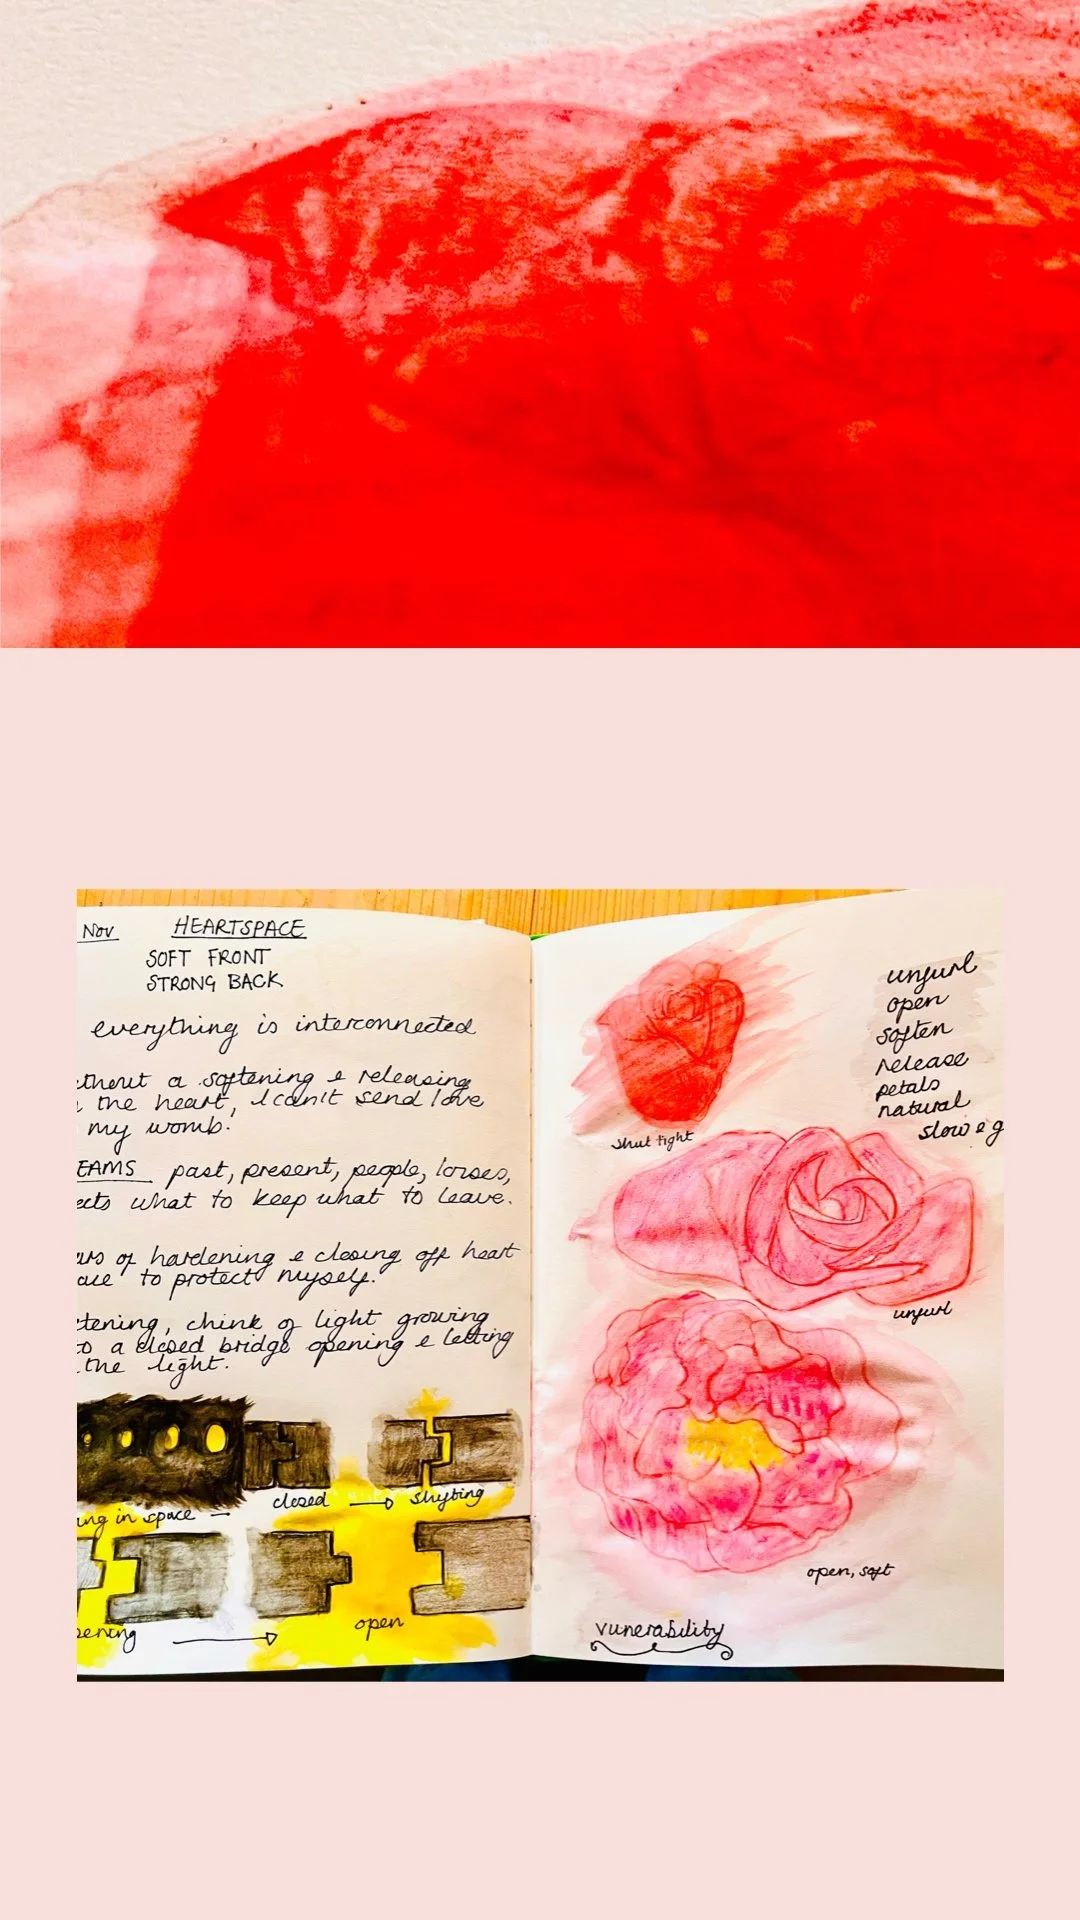 Nov HEARTSPACE
SOFT FRONT
STRONG BACK
everything is interconnected
thout a softening & releasing
the heart, I can't send love
my womb.
EAMS past, present, people, losses,
ects what to keep what to leave.
ars of hardening & closing off heart
to protect myself.
tening, chink of light growing
to a closed bridge opening & letting
the light.
closed shifting
ng in space
open
ening
unfurl
open
soften
release
petals
natural
slow & g
shut tight
unfurl
open, soft
vunerability